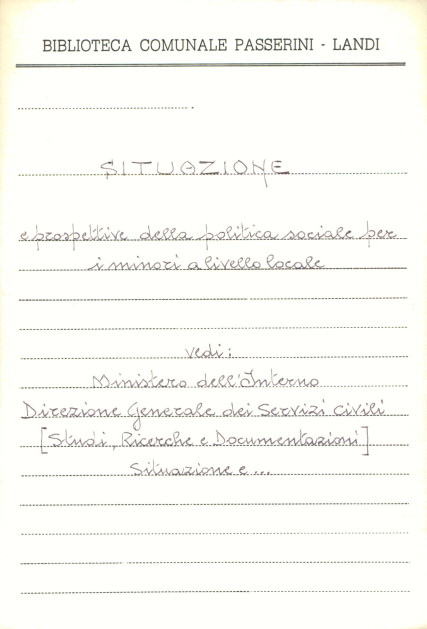 BIBLIOTECA COMUNALE PASSERINI - LANDI
SITUAZIONE
e prospettive della politica sociale per
i minori a livello locale
vedi:
Ministero dell'Interno
Direzione Generale dei Servizi Civili
[Studi, Ricerche e Documentazioni]
Situazione e ...